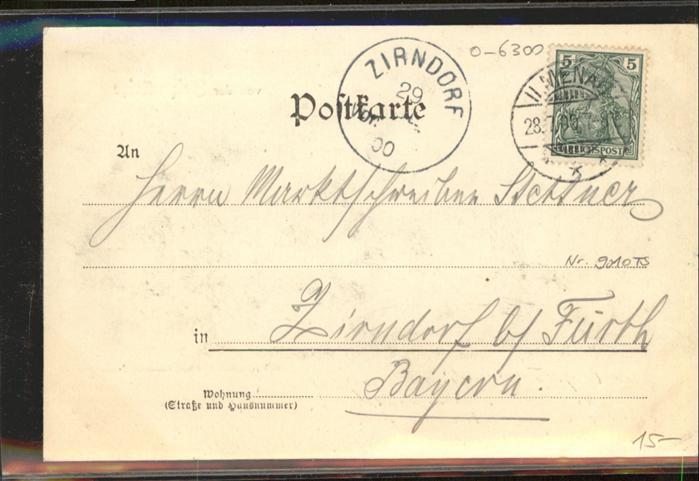 0-6300
ZIRNDORF
29
00
5 5
ILMENAU
REICHSPOST
Postkarte
An
Herrn Marktschreiber Stettner
Nr. 9010TS
in Zirndorf b/ Fürth
Bayern.
Wohnung
(Straße und Hausnummer)
15-